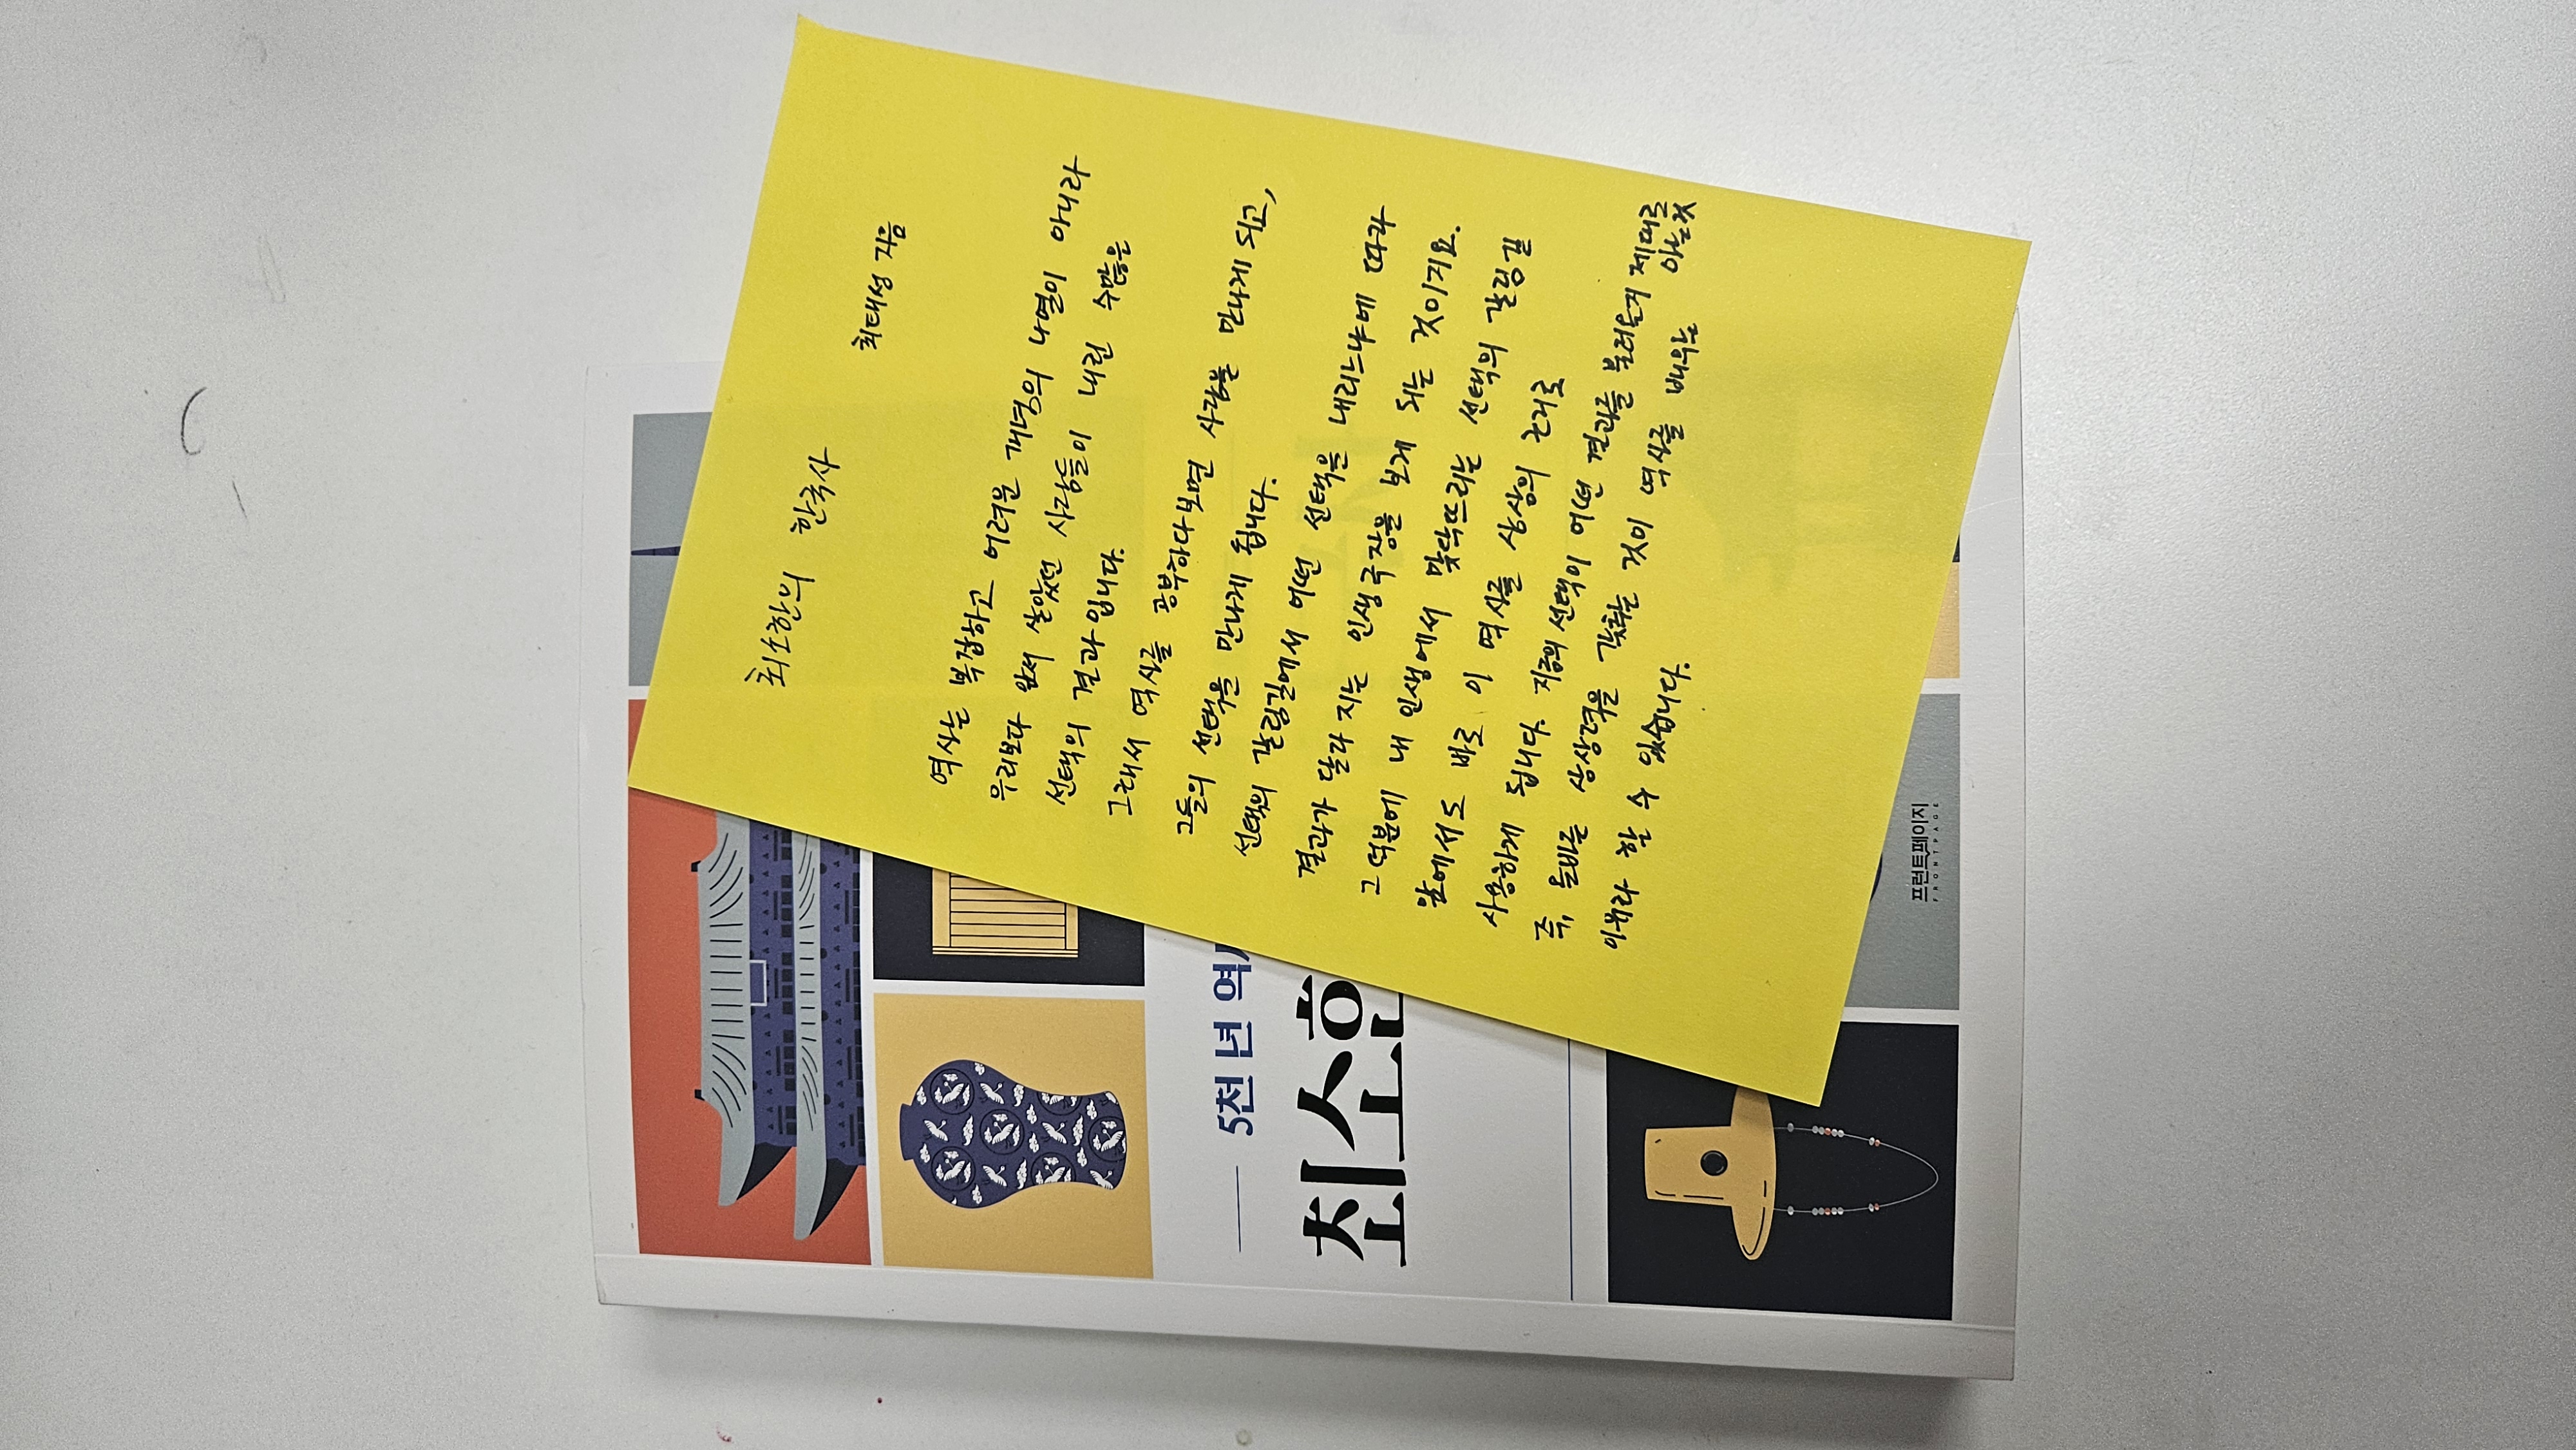 최소한의 한국사
최태성 지음
역사는 복잡하고 어려운 개념의 나열이 아니라
우리보다 앞서 살았던 사람들이 내린 수많은
선택의 결과입니다.
그래서 역사를 공부하다보면 사람을 만나게 되고,
그들의 선택을 만나게 됩니다.
선택의 갈림길에서 어떤 선택을 내리느냐에 따라
결과가 달라지는 인생극장을 보게 되는 것이지요.
그 덕분에 내 인생에서 맞닥뜨리는 선택의 갈림길
앞에서도 바로 이 역사를 상상의 근거로
사용하게 됩니다. 지금의 선택이 어떤 결과를 불러올지 제대로
된 상상력을 갖추는 것이 역사를 배의 아닐까
이라 할 수 있습니다.
5천 년 역
최소한
프런트페이지
FRONTPAGE